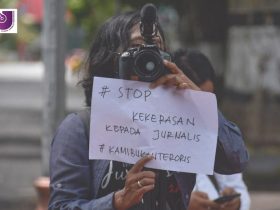 # STOP
KEKERASAN
KEPADA JURNALIS
# KAMIBUKANTERORIS